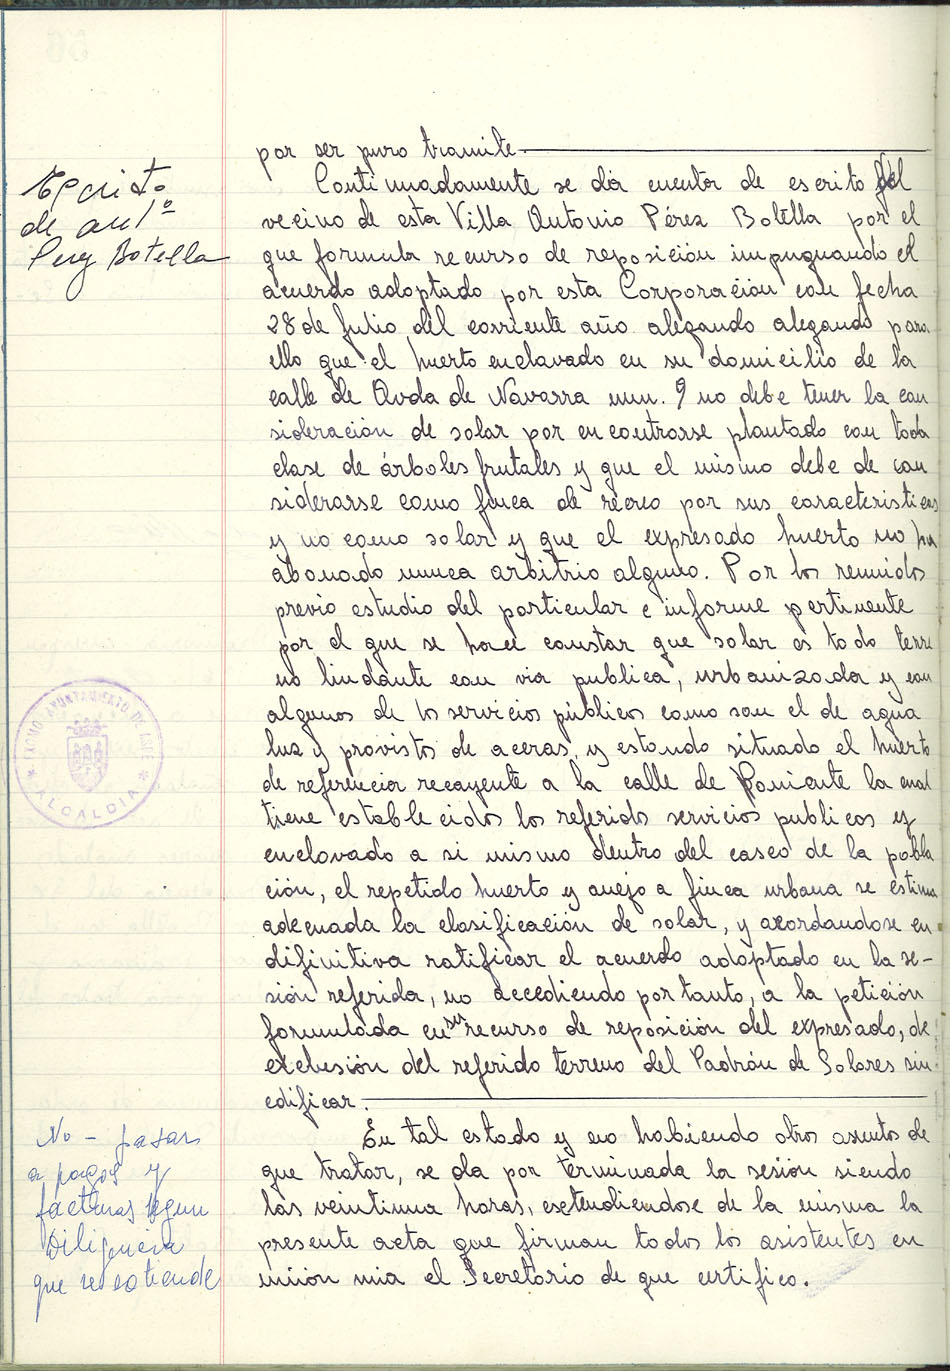 por ser puro tramite
Escrito
de Antº
Perez Botella
Continuadamente se da cuenta de escrito del
vecino de esta Villa Antonio Pérez Botella por el
que formula recurso de reposición impugnando el
acuerdo adoptado por esta Corporación con fecha
28 de Julio del corriente año alegando alegando para
ello que el huerto enclavado en su domicilio de la
calle de Avda de Navarra num. 9 no debe tener la con
sideración de solar por encontrarse plantado con toda
clase de árboles frutales y que el mismo debe de con
siderarse como finca de recreo por sus caracteristicas
y no como solar y que el expresado huerto no ha
abonado nunca arbitrio alguno. Por los reunidos
previo estudio del particular e informe pertinente
por el que se hace constar que solar es todo terre
no lindante con via publica, urbanizada y con
algunos de los servicios públicos como son el de agua
luz y provistos de aceras, y estando situado el huerto
de referencia recayente a la calle de Poniente la cual
tiene establecidos los referidos servicios publicos y
enclavado a si mismo dentro del casco de la pobla
ción, el repetido huerto y anejo a finca urbana se estima
adecuada la clasificación de solar, y acordandose en
difinitiva ratificar el acuerdo adoptado en la se-
sión referida, no accediendo por tanto, a la petición
formulada en su recurso de reposición del expresado, de
exclusión del referido terreno del Padrón de Solares sin
edificar.
EXCMO AYUNTAMIENTO DE
ALCALDIA
En tal estado y no habiendo otros asuntos de
que tratar, se da por terminada la sesión siendo
las veintiuna horas, extendiendose de la misma la
presente acta que firman todos los asistentes en
unión mia el Secretario de que certifico.
No - pasar
a pagos y
facturas segun
Diligencia
que se extiende